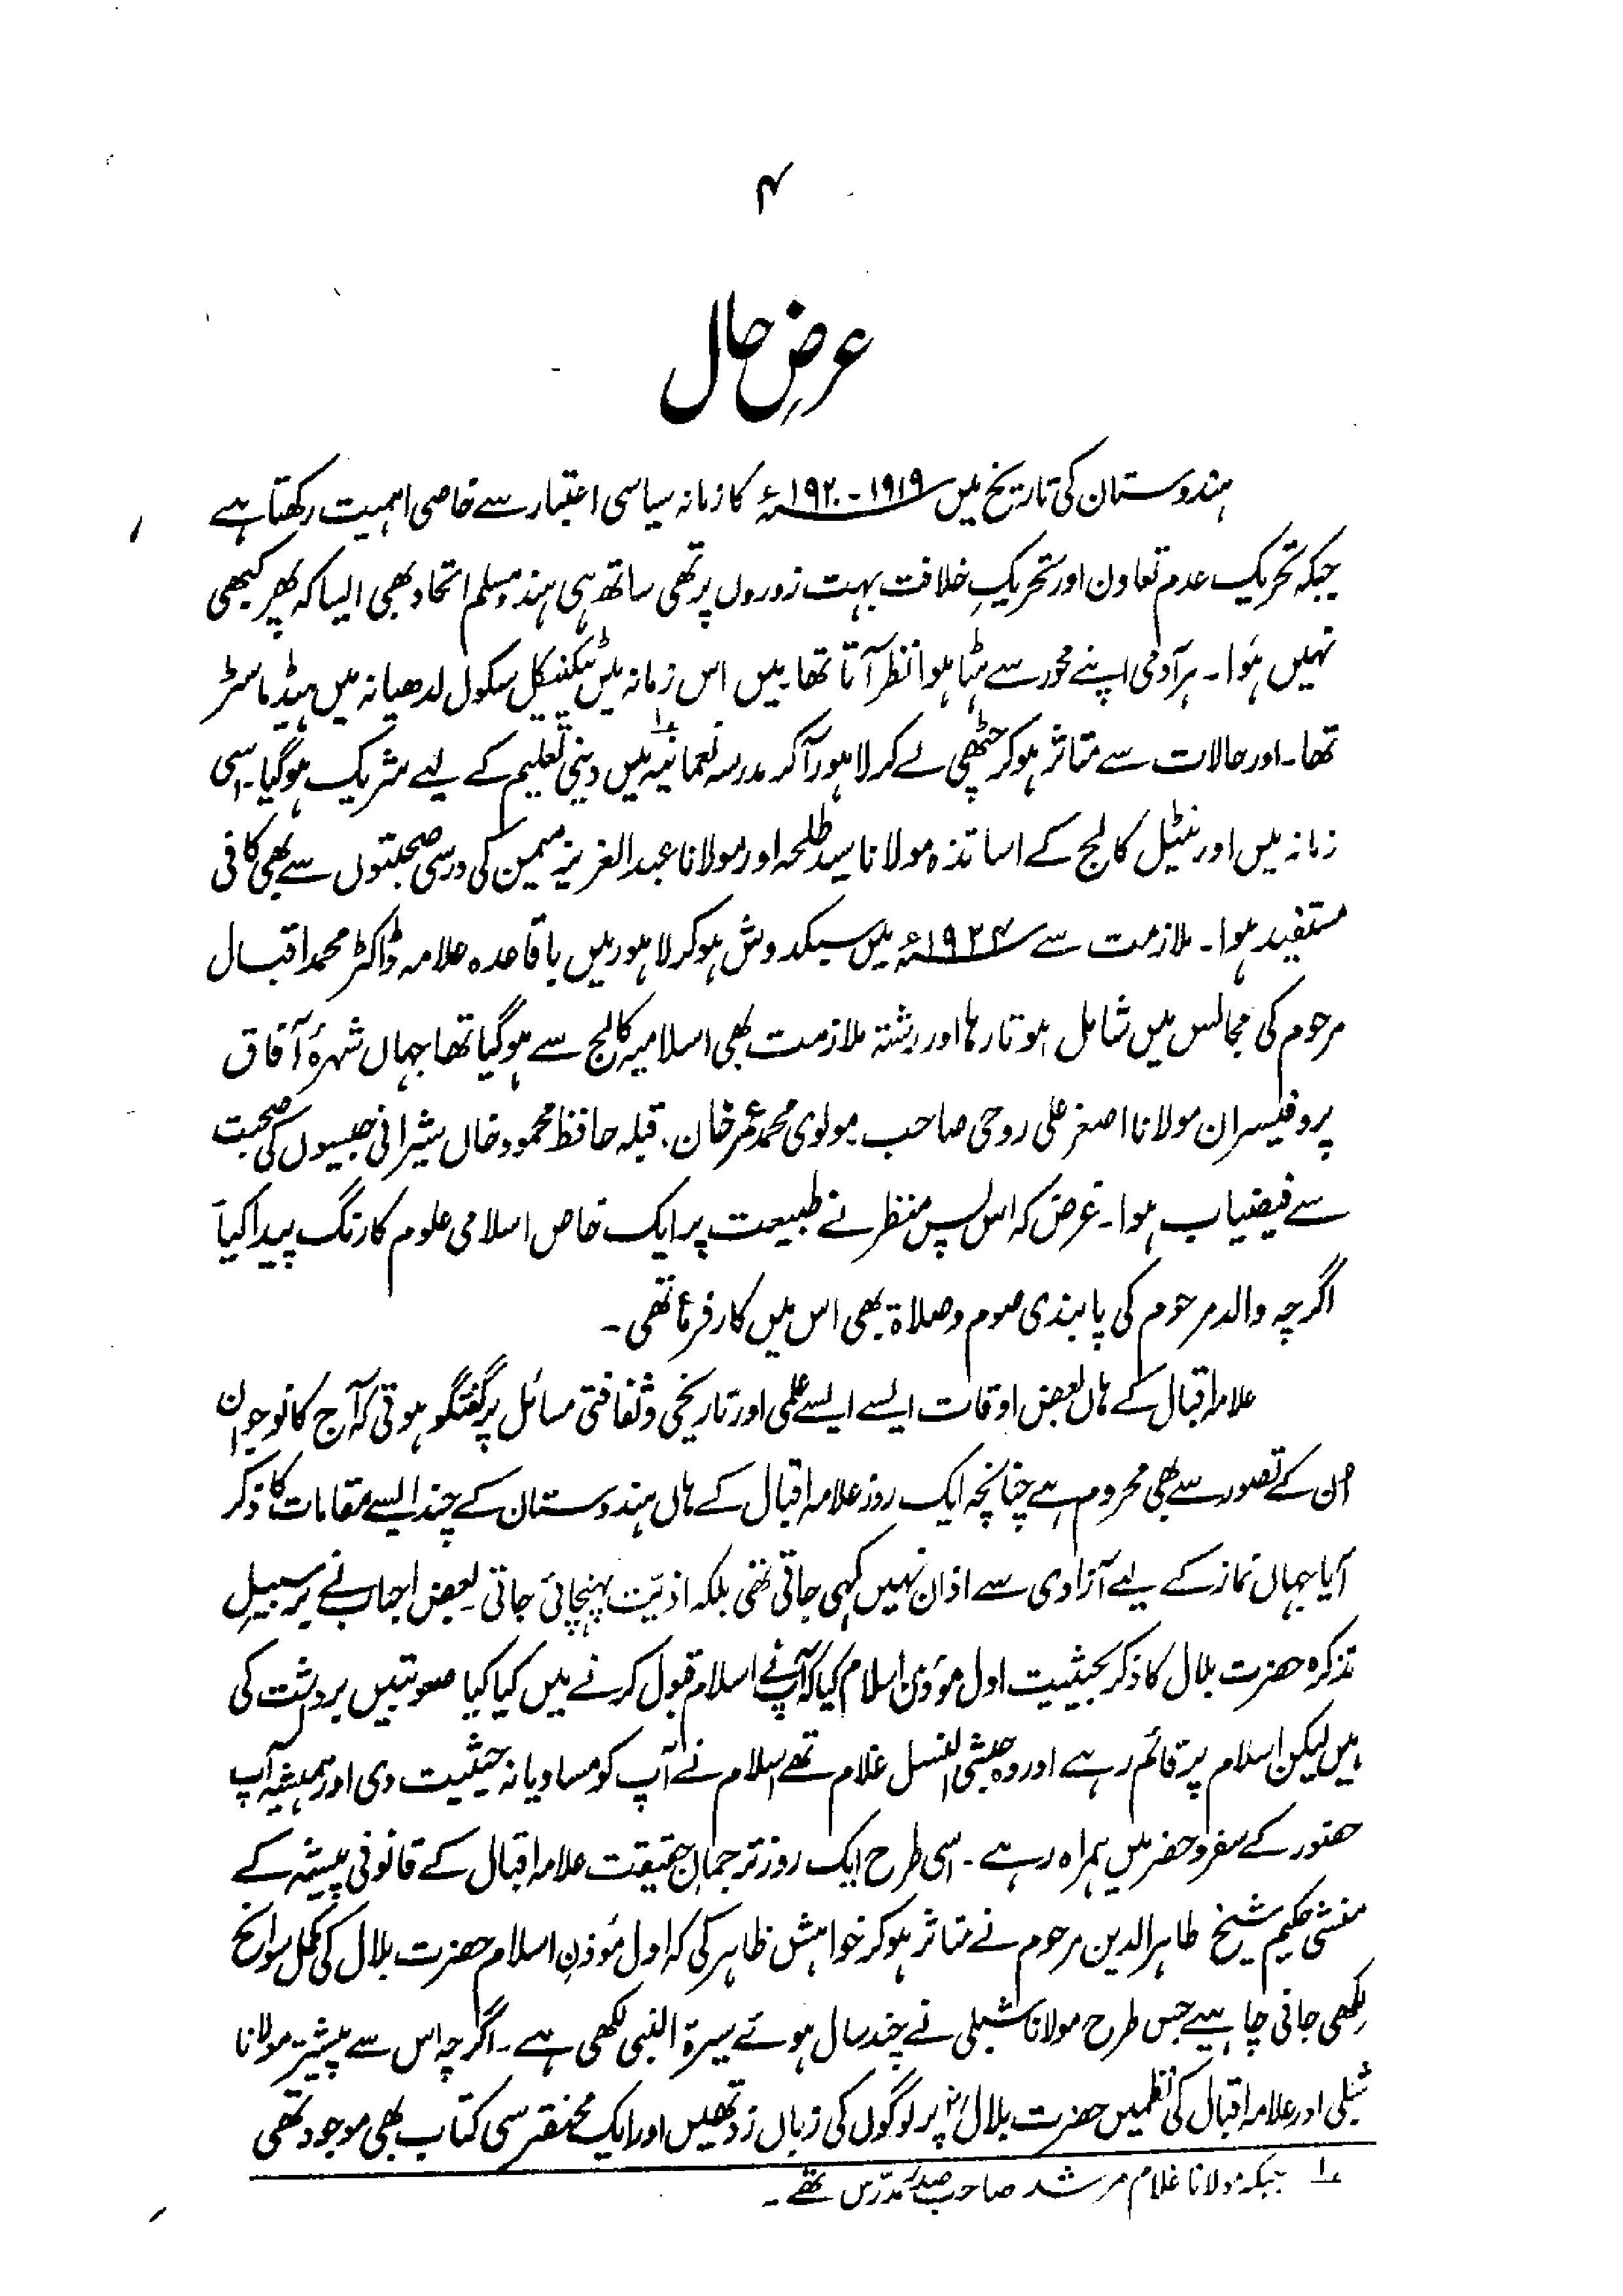 ۴
عرضِ حال
ہندوستان کی تاریخ میں ۱۹۱۹-۱۹۲۰ء کا زمانہ سیاسی اعتبار سے خاصی اہمیت رکھتا ہے
جبکہ تحریک عدم تعاون اور تحریکِ خلافت بہت زوروں پر تھی ساتھ ہی ہندو مسلم اتحاد بھی ایسا کہ پھر کبھی
نہیں ہؤا۔ ہر آدمی اپنے محور سے ہٹا ہوا نظر آتا تھا۔ میں اس زمانہ میں ٹیکنیکل سکول لدھیانہ میں ہیڈ ماسٹر
تھا۔ اور حالات سے متاثر ہو کر چٹھی لے کر لاہور آکر مدرسہ نعمانیہ۱؎ میں دینی تعلیم کے لیے شریک ہوگیا۔ اسی
زمانہ میں اورنٹیل کالج کے اساتذہ مولانا سید طلحہ اور مولانا عبدالعزیز میمن کی درسی صحبتوں سے بھی کافی
مستفید ہوا۔ ملازمت سے ۱۹۲۴ء میں سبکدوش ہوکر لاہور میں باقاعدہ علامہ ڈاکٹر محمد اقبال
مرحوم کی مجالس میں شامل ہوتا رہا اور رشتۂ ملازمت بھی اسلامیہ کالج سے ہوگیا تھا جہاں شہرۂ آفاق
پروفیسران مولانا اصغر علی روحی صاحب مولوی محمد عمر خان، قبلہ حافظ محمود خاں شیرانی جیسوں کی صحبت
سے فیضیاب ہوا۔ غرض کہ اس پس منظر نے طبیعت پر ایک خاص اسلامی علوم کا رنگ پیدا کیا
اگرچہ والد مرحوم کی پابندی صوم و صلاۃ بھی اس میں کارفرما تھی۔
علامہ اقبال کے ہاں بعض اوقات ایسے ایسے علمی اور تاریخی و ثقافتی مسائل پر گفتگو ہوتی کہ آج کا نوجوان
ان کے تصور سے بھی محروم ہے چنانچہ ایک روز علامہ اقبال کے ہاں ہندوستان کے چند ایسے مقامات کا ذکر
آیا جہاں نماز کے لیے آزادی سے اذان نہیں کہی جاتی تھی بلکہ اذیّت پہنچائی جاتی بعض احباب نے بر سبیلِ
تذکرہ حضرت بلال کا ذکر بحیثیت اول مؤذن اسلام کیا کہ آپ نے اسلام قبول کرنے میں کیا کیا صعوبتیں برداشت کی
ہیں لیکن اسلام پر قائم رہے اور وہ حبشی النسل غلام تھے اسلام نے آپ کو مساویانہ حیثیت دی اور ہمیشہ آپ
حضور کے سفر و حضر میں ہمراہ رہے۔ اسی طرح ایک روز ترجمانِ حقیقت علامہ اقبال کے قانونی پیشہ کے
منشی حکیم شیخ طاہر الدین مرحوم نے متاثر ہوکر خواہش ظاہر کی کہ اول مؤذنِ اسلام حضرت بلال کی مکمل سوانح
لکھی جانی چاہیے جس طرح مولانا شبلی نے چند سال ہوئے سیرۃ النبی لکھی ہے۔ اگرچہ اس سے پیشتر مولانا
شبلی اور علامہ اقبال کی نظمیں حضرت بلالؓ پر لوگوں کی زباں زد تھیں اور ایک مختصر سی کتاب بھی موجود تھی
۱؎ جبکہ مولانا غلام مرشد صاحب صدر مدرّس تھے۔